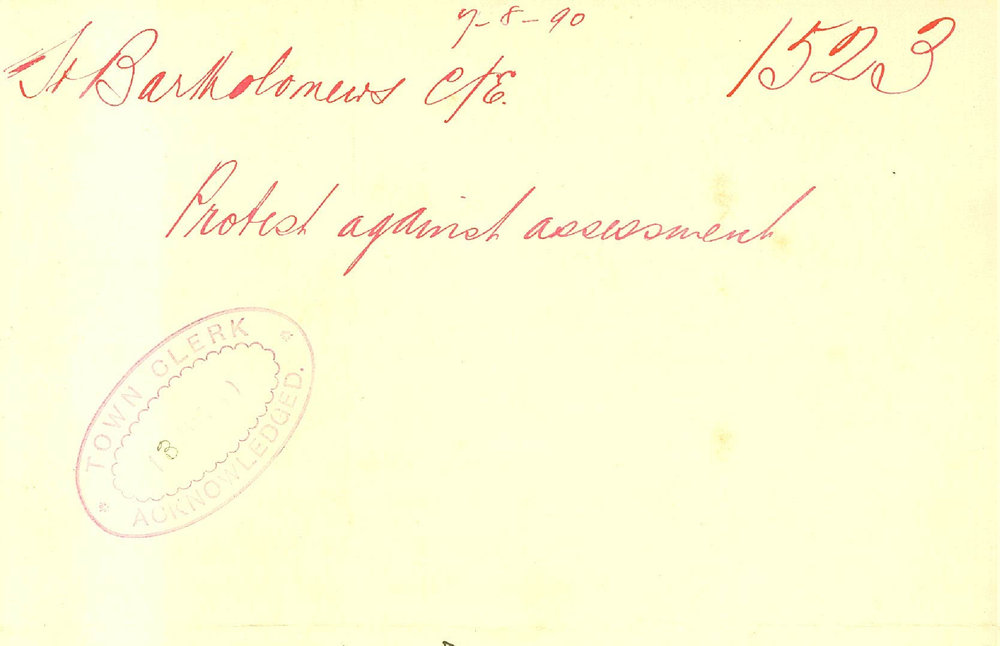 7-8-90
St Bartholomews C/E.
1523
Protest against assessment
TOWN CLERK
ACKNOWLEDGED.